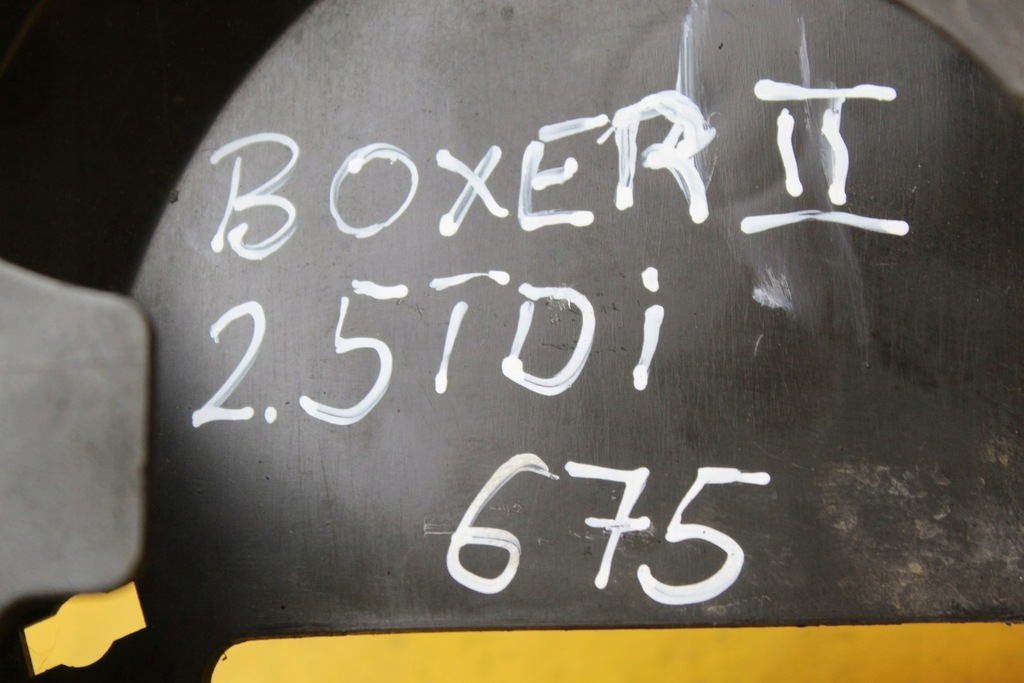 BOXER II
2.5TDi
675